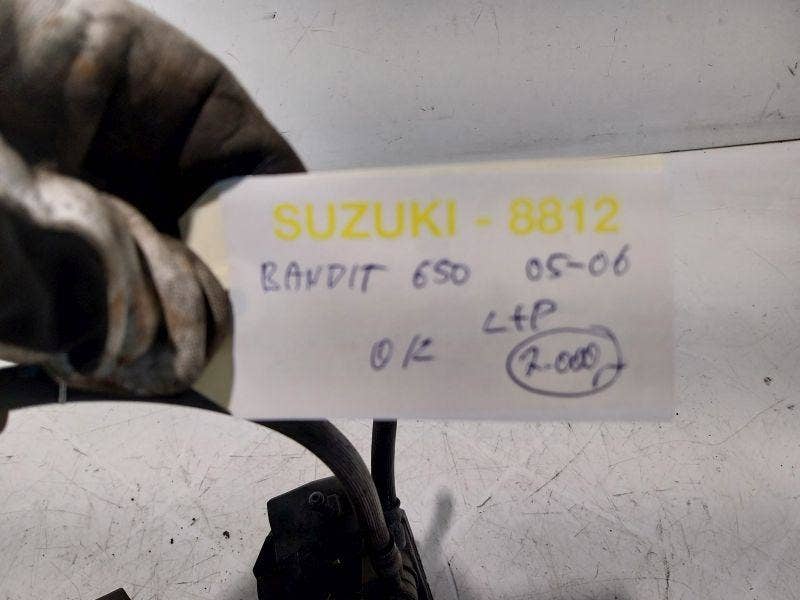 SUZUKI - 8812
BANDIT 650 05-06
L+P
OK 2.000,-